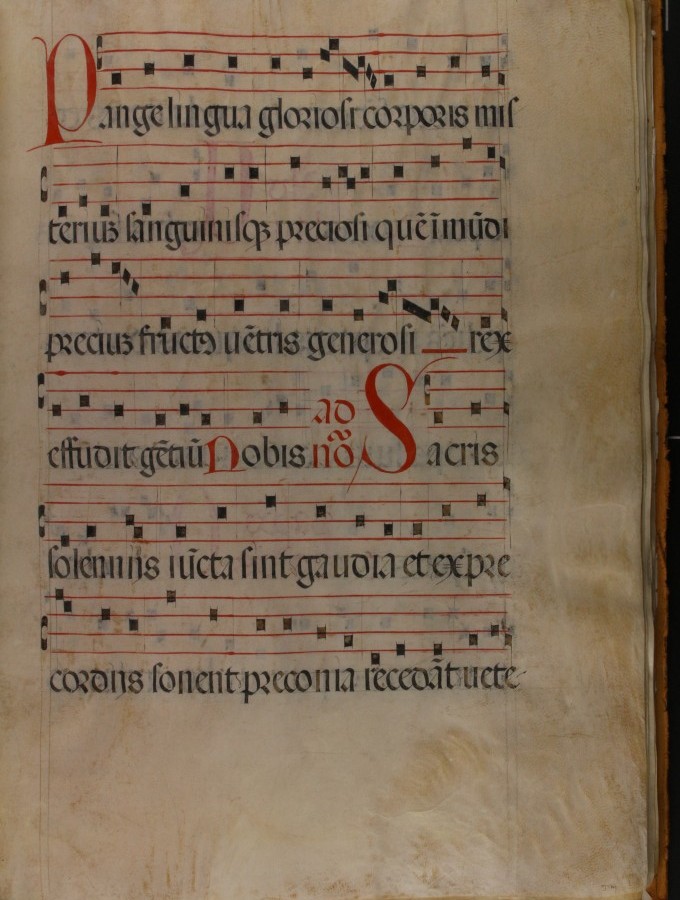 Pange lingua gloriosi corporis mis
teriuʒ sanguinisqʒ preciosi quē ī mūdi
preciuʒ fructꝰ uētris generosi rex
effudit gētiū Nobis ad nõ Sacris
solenniis iūcta sint gaudia et ex pre
cordiis sonent preconia recedāt uete